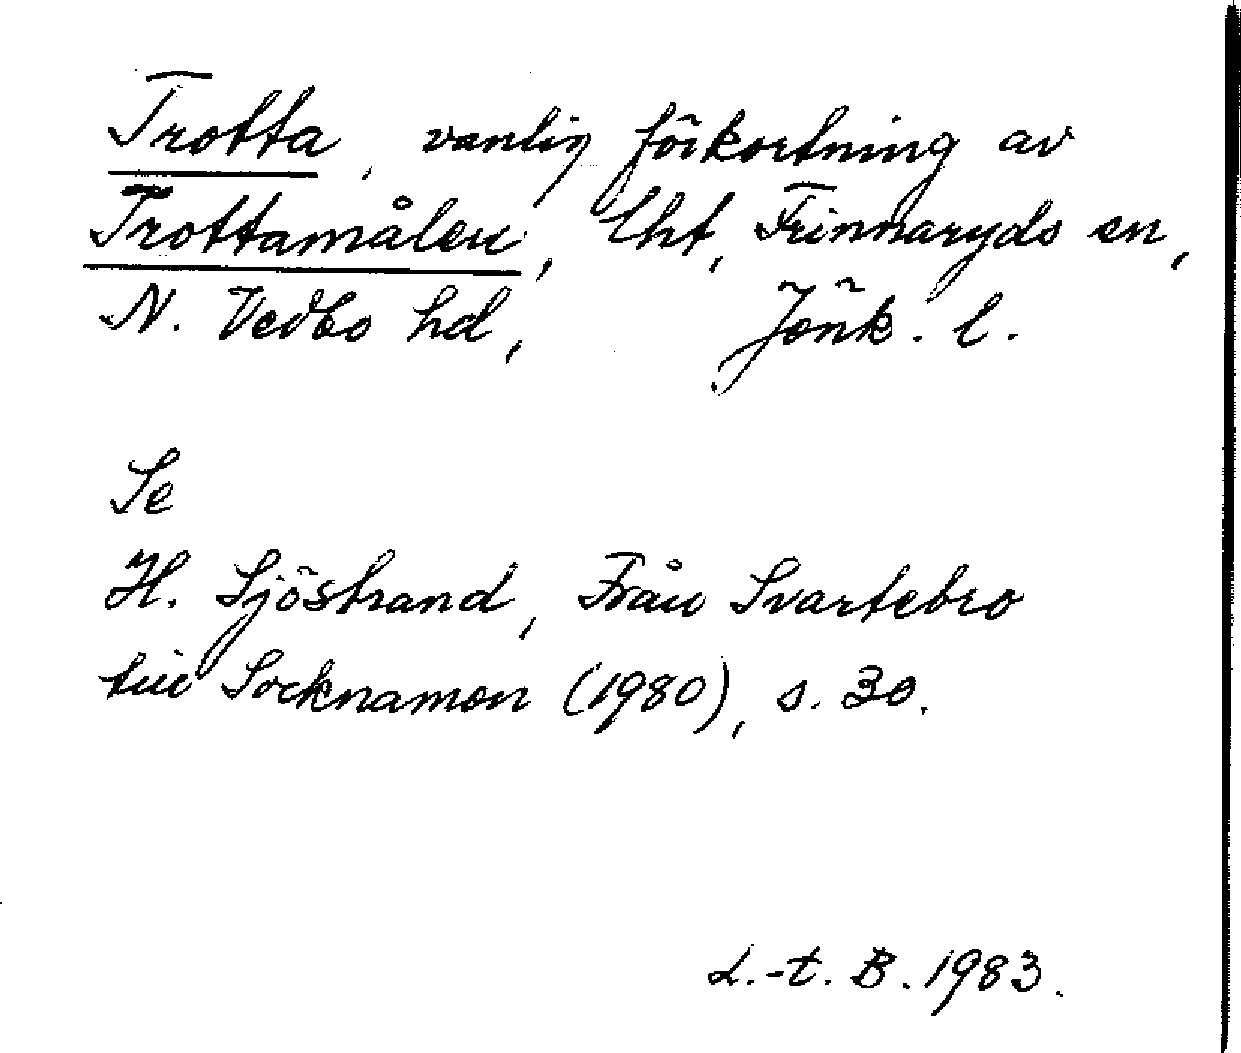 Trotta, vanlig förkortning av
Trottamålen, lht, Frinnaryds sn,
N. Vedbo hd, Jönk. l.
Se
H. Sjöstrand, Från Svartebro
till Socknamon (1980), s. 30.
L.-t. B. 1983.